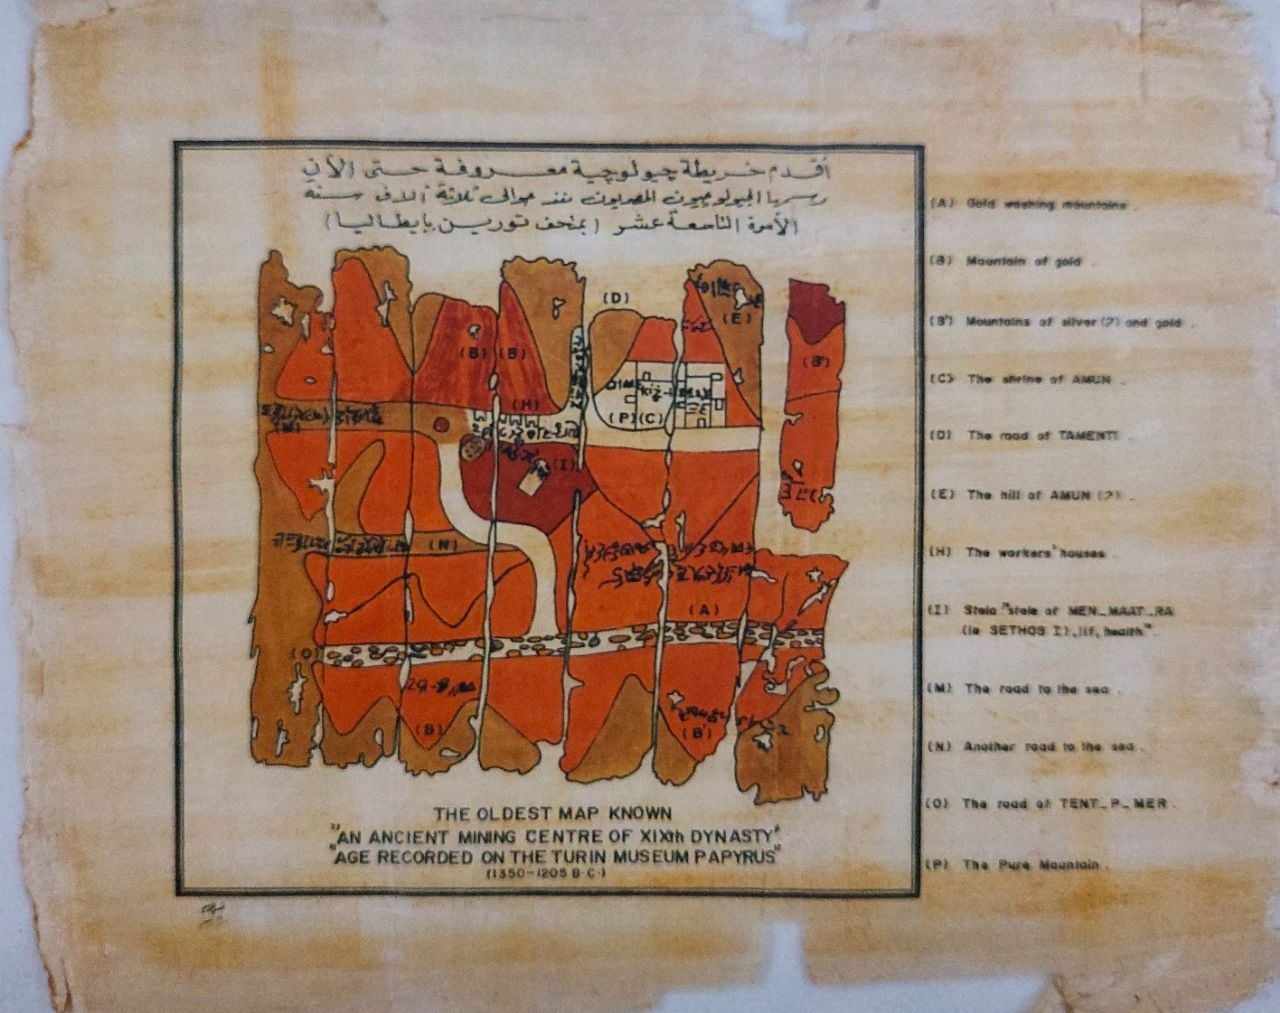 أقدم خريطة چيولوچية معروفة حتى الآن
رسمها الجيولوجيون المصريون منذ حوالى ثلاثة آلاف سنة
الأسرة التاسعة عشر (بمتحف تورين بإيطاليا)
(D)
(E)
(B) (B)
(B')
(H)
(P) (C)
(M)
(I)
(N)
(A)
(O)
(B)
(B')
THE OLDEST MAP KNOWN
"AN ANCIENT MINING CENTRE OF XIXth DYNASTY"
"AGE RECORDED ON THE TURIN MUSEUM PAPYRUS"
(1350-1205 B.C.)
(A) Gold washing mountains.
(B) Mountain of gold.
(B') Mountains of silver (?) and gold.
(C) The shrine of AMUN.
(D) The road of TAMENTI.
(E) The hill of AMUN (?).
(H) The workers' houses.
(I) Stela "stele of MEN_MAAT_RA
(ie SETHOS I), lif, health".
(M) The road to the sea.
(N) Another road to the sea.
(O) The road of TENT_P_MER.
(P) The Pure Mountain.